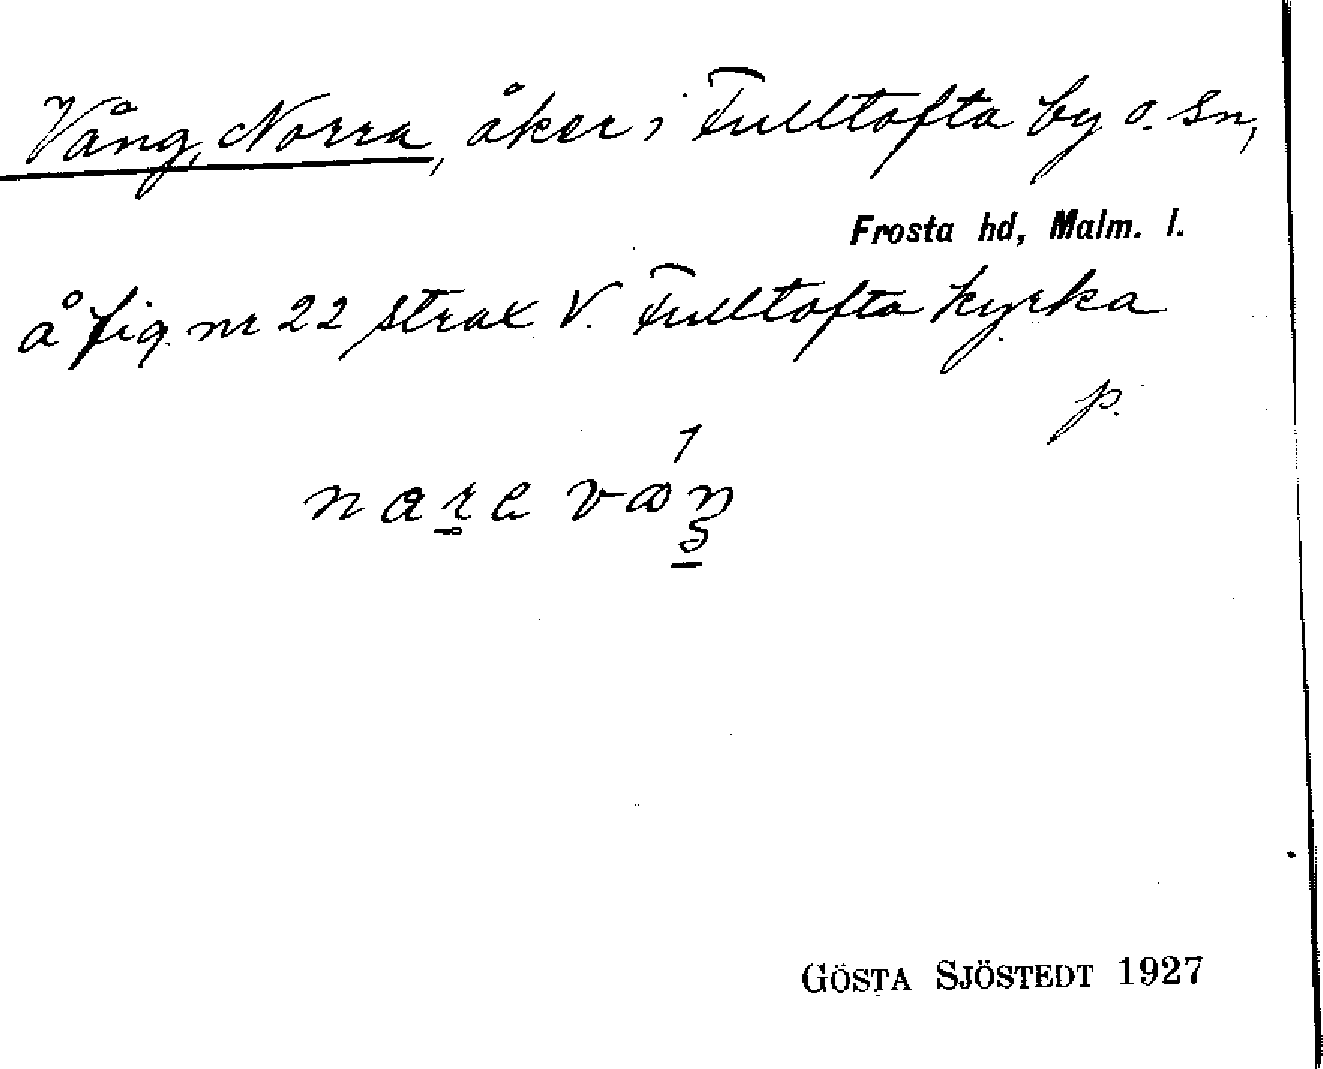 Vång, Norra, åker i Fulltofta by o. sn,
Frosta hd, Malm. l.
å fig. nr 22 strax V. Fulltofta kyrka
p.
GÖSTA SJÖSTEDT 1927